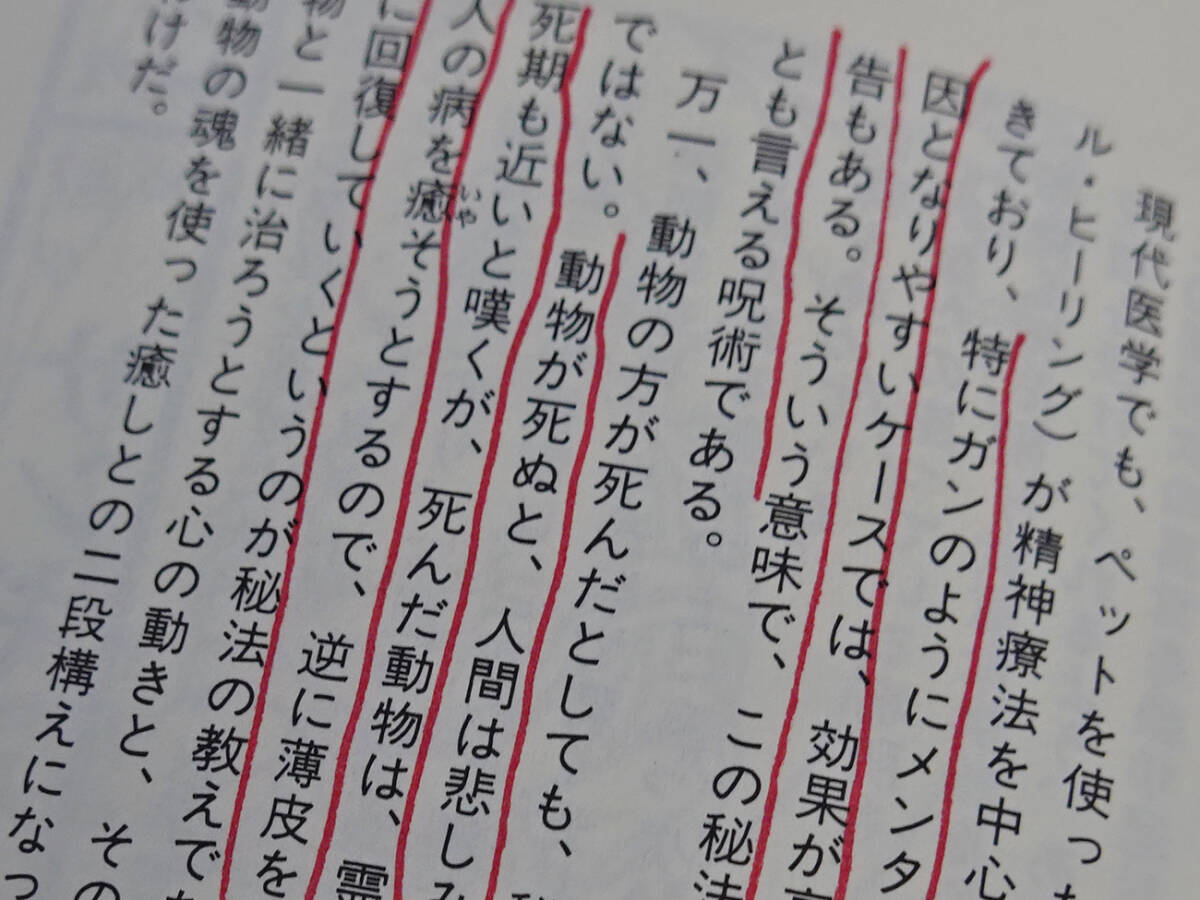 現代医学でも、ペットを使った
ル・ヒーリング）が精神療法を中心
きており、特にガンのようにメンタ
因となりやすいケースでは、効果が
告もある。そういう意味で、この秘法
とも言える呪術である。
万一、動物の方が死んだとしても、
ではない。動物が死ぬと、人間は悲しみ
死期も近いと嘆くが、死んだ動物は、霊
人の病を癒そうとするので、逆に薄皮を
いや
に回復していくというのが秘法の教えで
物と一緒に治ろうとする心の動きと、その
動物の魂を使った癒しとの二段構えになっ
けだ。